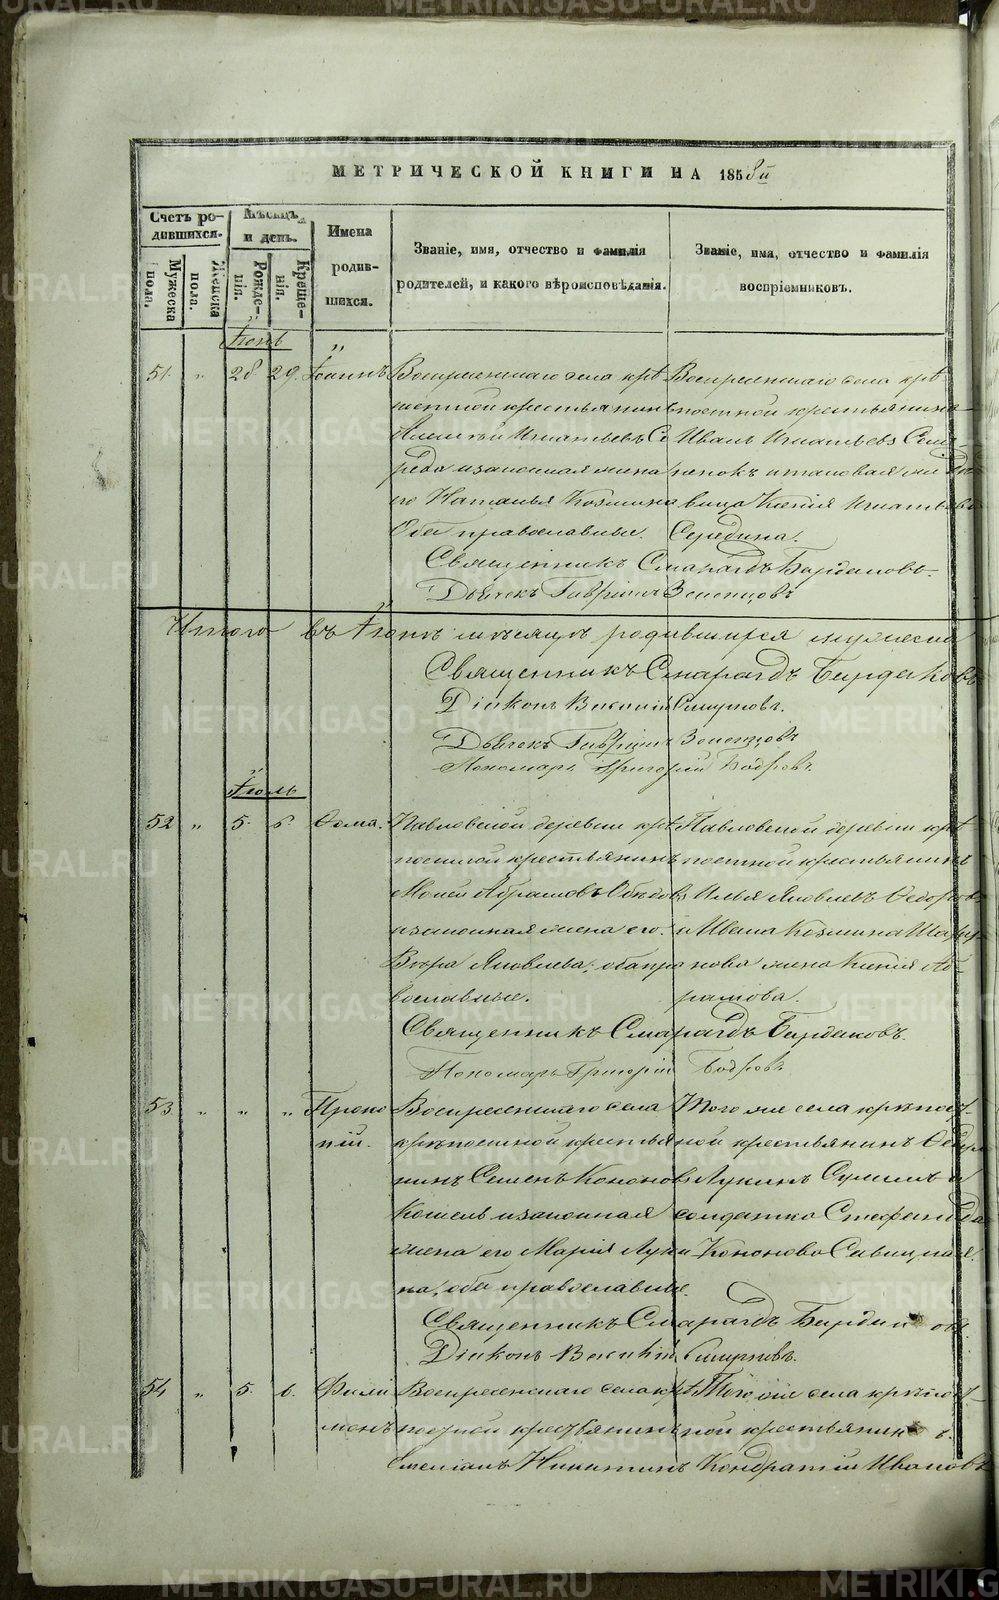 METRIKI.GASO-URAL.RU
МЕТРИЧЕСКОЙ КНИГИ НА 1858й
Счетъ ро-
дившихся.
Мужеска пола.
Женска пола.
Мѣсяцъ
и день.
Рожде-
нія.
Креще-
нія.
Имена
родив-
шихся.
Званіе, имя, отчество и фамилія
родителей, и какого вѣроисповѣданія.
Званіе, имя, отчество и фамилія
воспріемниковъ.
Іюнь
51. " 28. 29. Іоаннъ
Воскресенскаго села крѣ
постной крестьянинъ
Алексѣй Игнатьевъ Се
реда и законная жена
его Наталья Козмина
Оба православные.
Воскресенскаго села крѣ-
постной крестьянинъ
Иванъ Игнатьевъ
Ксенія Игнатьева
Середина.
Священникъ Смарагдъ Бирдаковъ.
Дьячекъ Гавріилъ Зеленцовъ
Итого въ Іюнѣ мѣсяцѣ родившихся мужеска
Священникъ Смарагдъ Бирдаковъ
Діаконъ Смирновъ.
Дьячекъ Гавріилъ Зеленцовъ
Пономарь Григорій Бодровъ.
Іюль
52 " 5. 6. Ѳома.
Павловской деревни крѣ
постной крестьянинъ
Абрамовъ
и законная жена его
Вѣра Яковлева, оба пра
вославные.
Павловской деревни крѣ
постной крестьянинъ
Илья Яковлевъ Ѳедоровъ
и Ивана Козмина
нова жена Ксенія Аб-
рамова.
Священникъ Смарагдъ Бирдаковъ.
Пономарь Григорій Бодровъ
53 " " " Проко
пій.
Воскресенскаго села
крѣпостной крестья
нинъ Семенъ Кононовъ
и законная
жена его Марія Луки
на, оба православные.
Того же села крѣпост-
ной крестьянинъ
Лукинъ
солдатка Стефанида
Кононова
Священникъ Смарагдъ
Діаконъ Смирновъ.
54 " 5. 6. Фили
монъ
Воскресенскаго села крѣ
постной крестьянинъ
Никитинъ
Того же села крѣпост-
ной крестьянинъ
Кондратій Ивановъ